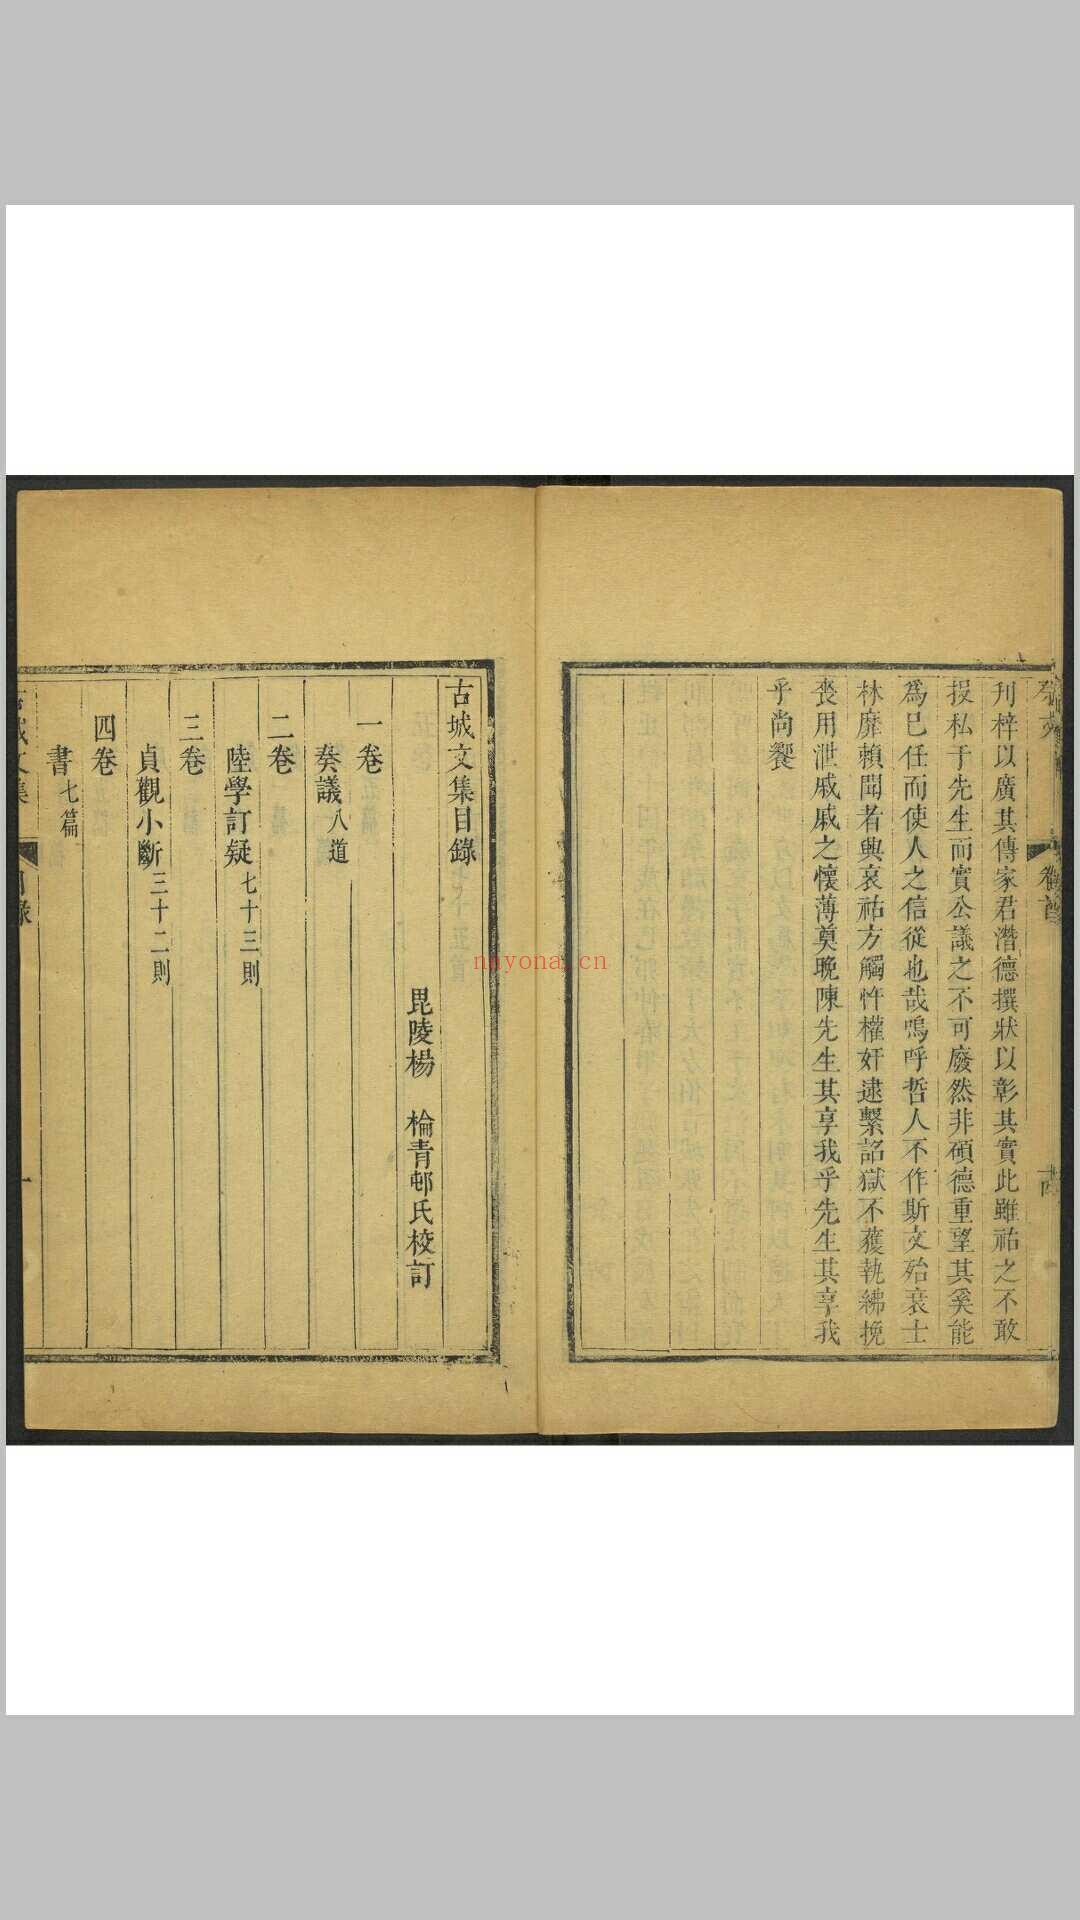 刊梓以廣其傳家君潛德撰狀以彰其實此雖祐之不敢
投私于先生而實公議之不可廢然非碩德重望其奚能
為已任而使人之信從也哉嗚呼哲人不作斯文殆衰士
林靡賴聞者興哀祐方觸忤權奸逮繫詔獄不獲執紼挽
喪用泄戚戚之懷薄奠晚陳先生其享我乎先生其享我
乎尚饗
古城文集目錄
毘陵楊　棆青邨氏校訂
一卷
奏議八道
二卷
陸學訂疑七十三則
三卷
貞觀小斷三十二則
四卷
書七篇
nayona.cn